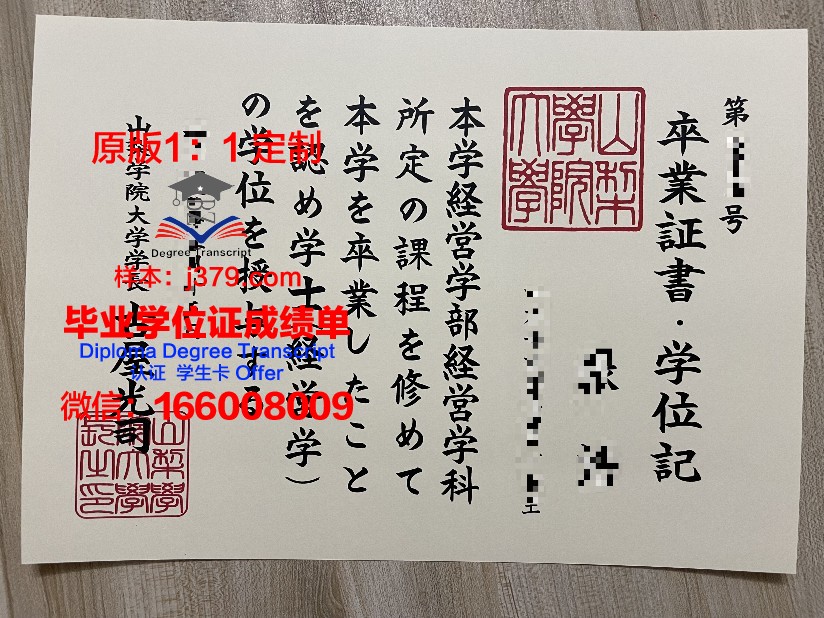 第
号
卒業証書・学位記
山梨
學院
大學
本学経営学部経営学科
所定の課程を修めて
本学を卒業したこと
を認め学士(経営学)
の学位を授与する
山梨学院大学学長 古屋光司
山梨學
院大學
長之印
原版1：1定制
Degree Transcript
样本：j379.com
毕业学位证成绩单
Diploma Degree Transcript
认证 学生卡 Offer
微信：166008009